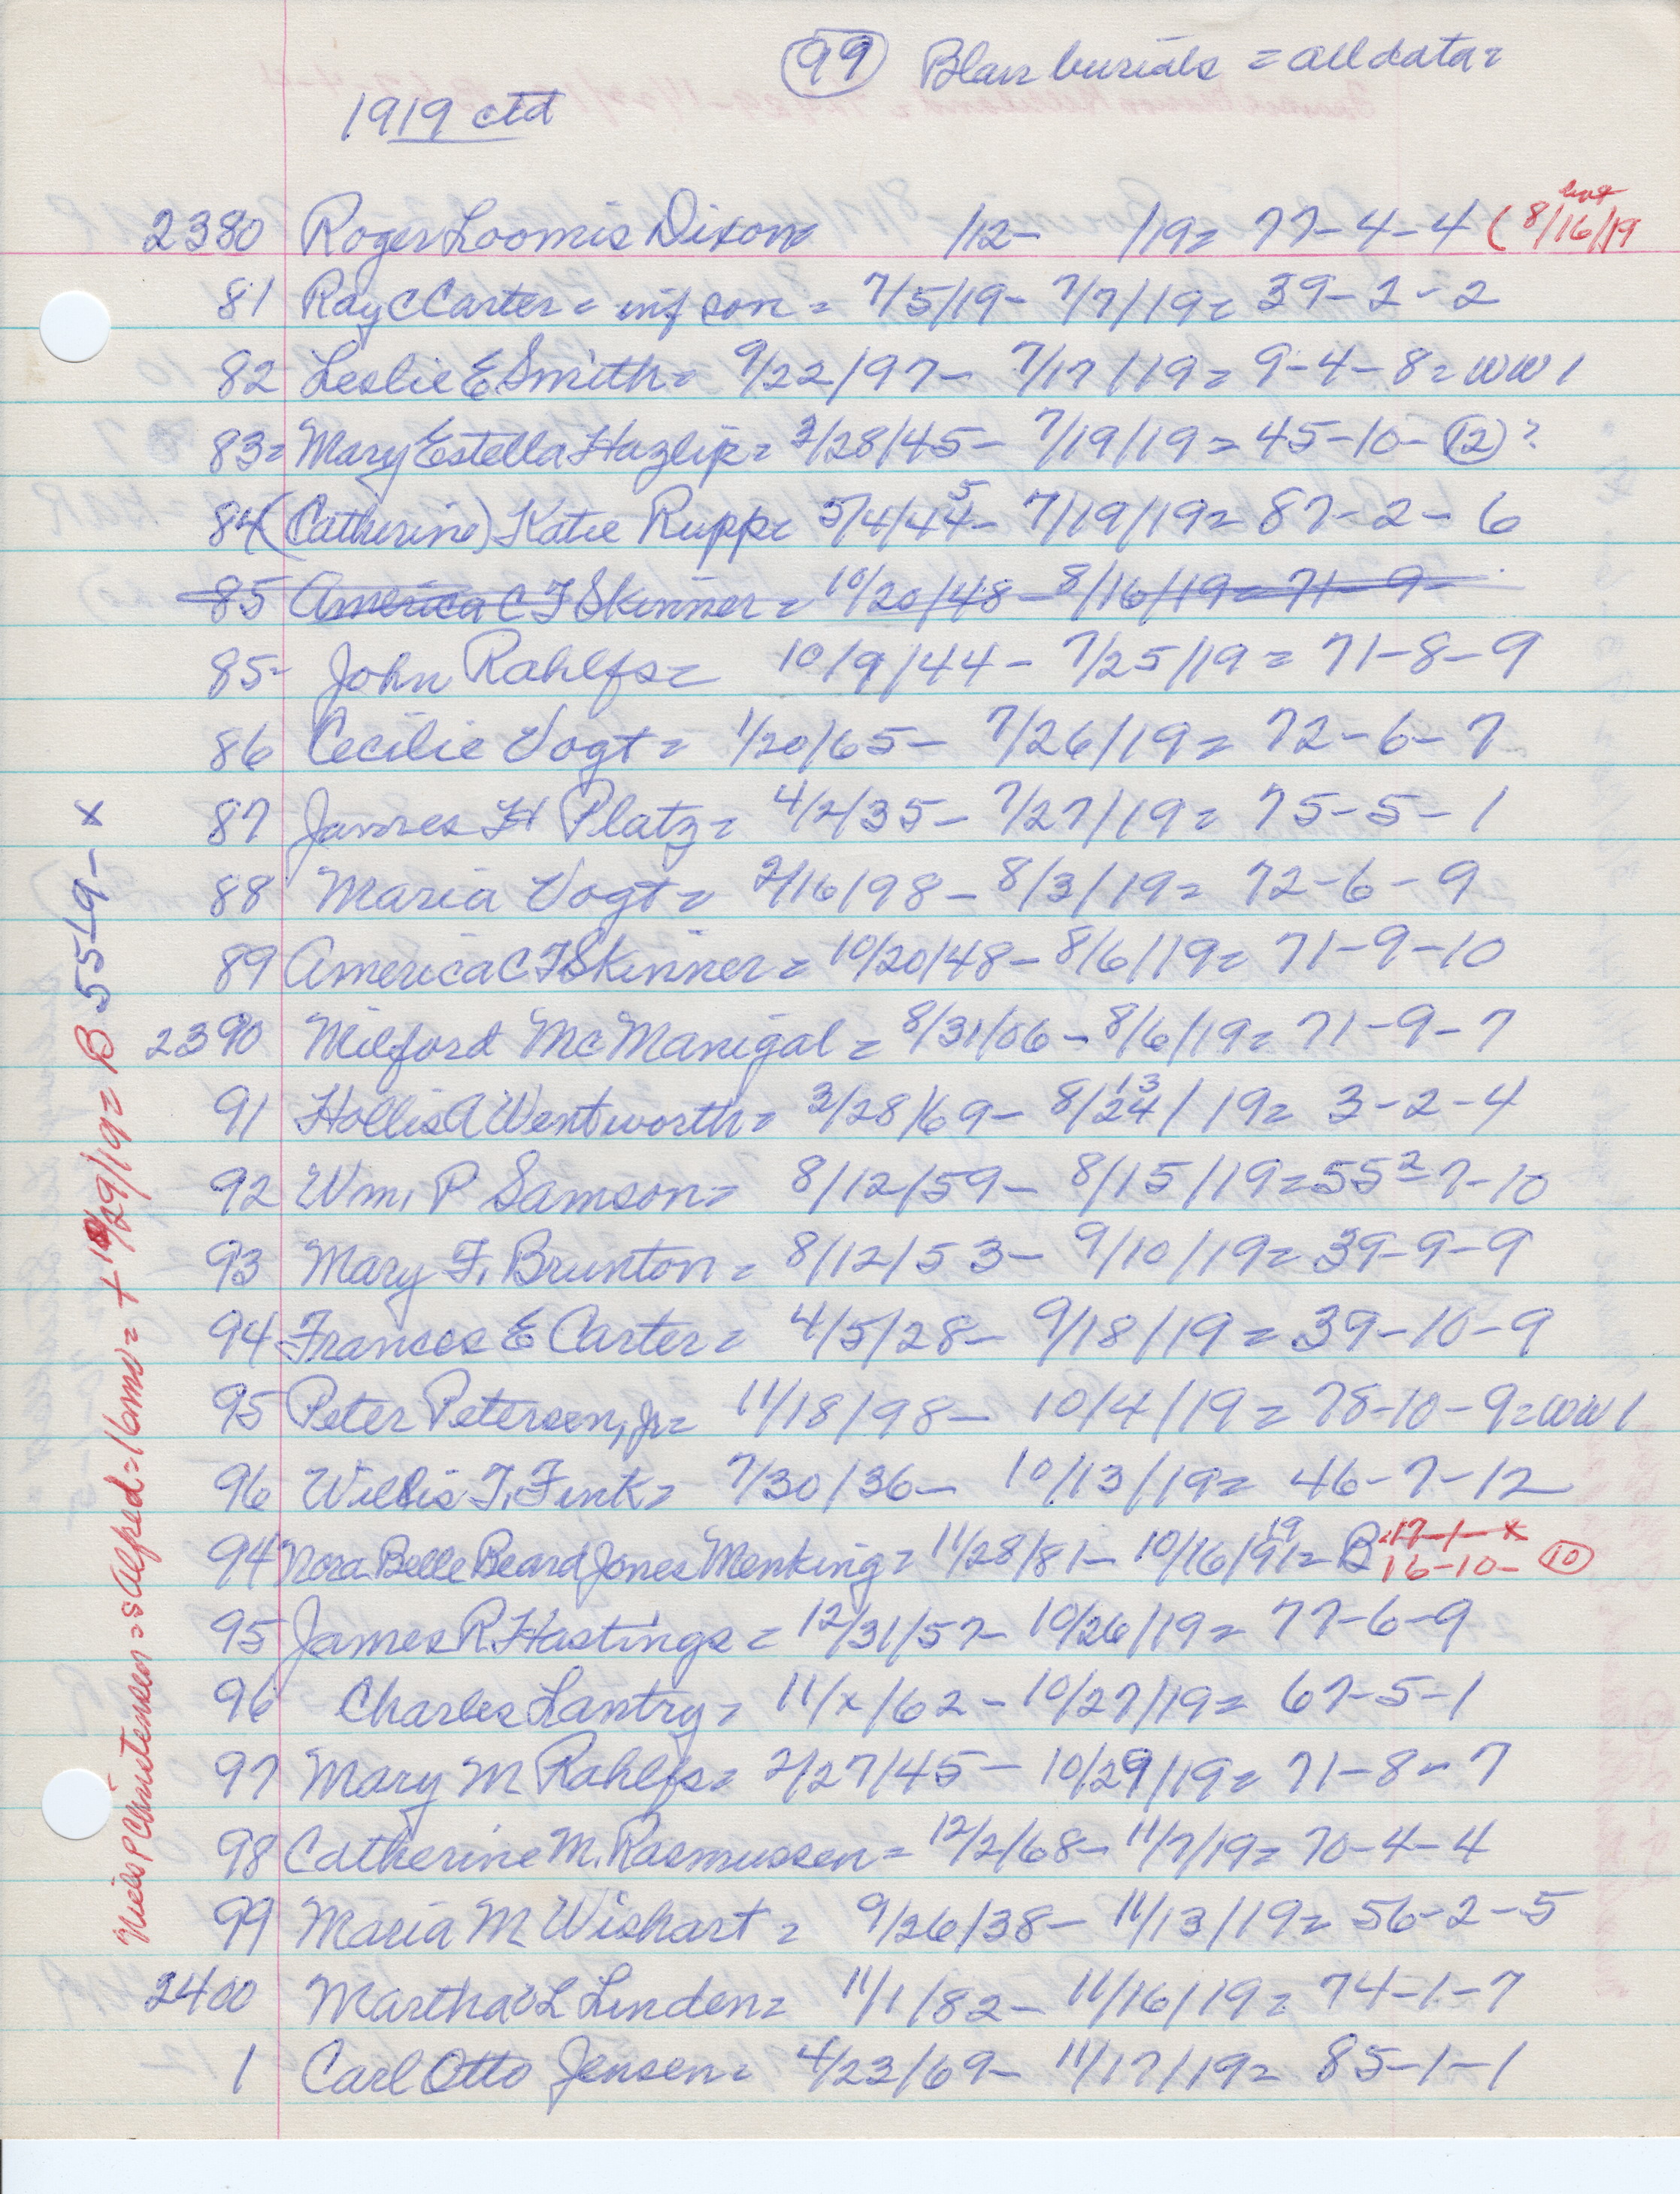 (99) Blair burials = all data =
1919 ctd
2380 Roger Loomis Dixon /12- /19= 77-4-4 (8/16/19
81 Ray C Carter = inf son = 7/5/19- 7/7/19= 39-2-2
82 Leslie E Smith= 9/22/97- 7/17/19= 9-4-8= WW1
83= Mary Estella Hazlip= 2/28/45- 7/19/19= 45-10-(12)?
84 (Catherine) Katie Rupp= 5/4/44 5- 7/19/19= 87-2-6
85 America C F Skinner = 10/20/48-8/16/19=71-9-
85- John Rahlfs= 10/9/44- 7/25/19= 71-8-9
86 Cecilie Vogt= 1/20/65- 7/26/19= 72-6-7
87 James H Platz= 4/2/35- 7/27/19= 75-5-1
88 Maria Vogt= 2/16/98- 8/3/19= 72-6-9
89 America C F Skinner= 10/20/48-8/6/19= 71-9-10
2390 Milford McManigal= 8/31/06-8/6/19= 71-9-7
91 Hollis A Wentworth= 2/28/69- 8/24 13/19= 3-2-4
92 Wm. P Samson= 8/12/59- 8/15/19=55=7-10
93 Mary F. Brunton= 8/12/53- 9/10/19= 39-9-9
94 Frances E Carter= 4/5/28- 9/18/19= 39-10-9
95 Peter Petersen, Jr= 11/18/98- 10/4/19= 78-10-9=WW1
96 Willis T. Fink= 7/30/36- 10/13/19= 46-7-12
94 Nora Belle Beard Jones Menking= 11/28/81- 10/16/91 19= B 17-1-x 16-10-(10)
95 James R Hastings= 12/31/57- 10/26/19= 77-6-9
96 Charles Lantry= 11/x/62-10/27/19= 67-5-1
97 Mary M Rahlfs= 2/27/45- 10/29/19= 71-8-7
98 Catherine M. Rasmussen= 12/2/68- 11/7/19= 70-4-4
99 Maria M Wishart= 9/26/38- 11/13/19= 56-2-5
2400 Martha L Linden= 11/1/82- 11/16/19= 74-1-7
1 Carl Otto Jensen= 4/23/69- 11/17/19= 85-1-1
Niels P Christensen=s Alfred=16mo= + /29/19= B 55-9-x